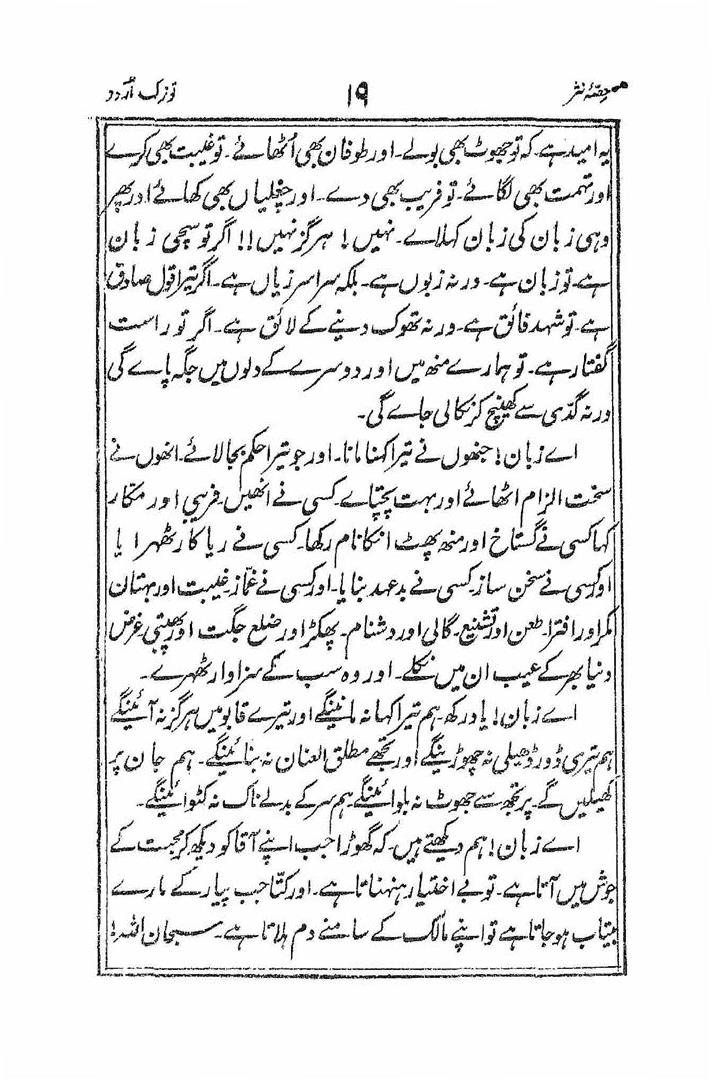 حصۂ نثر ۱۹ توزک اُردو
یہ امید ہے۔ کہ تو جھوٹ بھی بولے۔ اور طوفان بھی اُٹھائے۔ تو غیبت بھی کرے
اور تہمت بھی لگائے۔ تو فریب بھی دے۔ اور چغلیاں بھی کھائے اور پھر
وہی زبان کی زبان کہلاے۔ نہیں! ہرگز نہیں!! اگر تو سچی زبان
ہے۔ تو زبان ہے۔ ورنہ زبوں ہے۔ بلکہ سراسر زیاں ہے۔ اگر تیرا قول صادق
ہے۔ تو شہد فائق ہے۔ ورنہ تھوک دینے کے لائق ہے۔ اگر تو راست
گفتار ہے۔ تو ہمارے منھ میں اور دوسرے کے دلوں میں جگہ پاے گی
ورنہ گدّی سے کھینچ کر نکالی جاے گی۔
اے زبان! جنھوں نے تیرا کہنا مانا۔ اور جو تیرا حکم بجا لائے۔ انھوں نے
سخت الزام اٹھائے اور بہت پچتاے۔ کسی نے انھیں فریبی اور مکار
کہا کسی نے گستاخ اور منھ پھٹ انکا نام رکھا۔ کسی نے ریاکار ٹھہرایا
اور کسی نے سخن ساز۔ کسی نے بد عہد بنایا۔ اور کسی نے غمّاز۔ غیبت اور بہتان
مکر اور افترا۔ طعن اور تشنیع۔ گالی اور دشنام۔ پھکڑ اور ضلع جگت اور پھبتی غرض
دنیا بھر کے عیب ان میں نکلے۔ اور وہ سب کے سزاوار ٹھہرے۔
اے زبان! یاد رکھ۔ ہم تیرا کہا نہ مانینگے اور تیرے قابو میں ہرگز نہ آئینگے
ہم تیری ڈور ڈھیلی نہ چھوڑینگے اور تجھے مطلق العنان نہ بنائینگے۔ ہم جان پر
کھیلیں گے۔ پر تجھ سے جھوٹ نہ بلوائینگے۔ ہم سر کے بدلے ناک نہ کٹوائینگے۔
اے زبان! ہم دیکھتے ہیں۔ کہ گھوڑا جب اپنے آقا کو دیکھ کر محبت کے
جوش میں آتا ہے۔ تو بے اختیار ہنہناتا ہے۔ اور کتّا جب پیار کے مارے
بیتاب ہو جاتا ہے تو اپنے مالک کے سامنے دم ہلاتا ہے۔ سبحان اللہ!